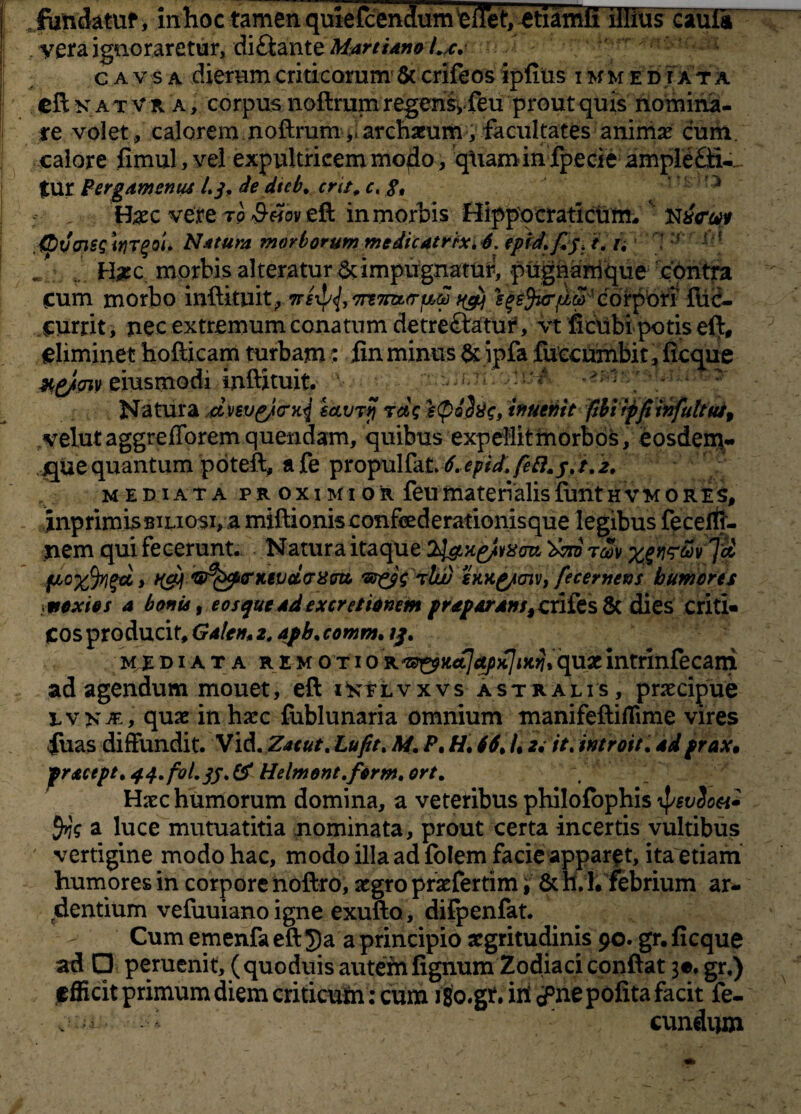 fundatur, in hoc tamen quiescendum esset, etiamsi illius causa
vera ignoraretur, dictante Martiano l.c.
CAVSA dierum criticorum & criseos ipsius IMMEDIATA
est NATVRA, corpus nostrum regens, seu prout quis nomina-
re volet, calorem nostrum, archæum, facultates animæ cum
calore simul, vel expultricem modo, quam in specie amplecti-
tur Pergamenus l.3. de dieb. crit. c. 8.
Hæc vere τὸ θεῖον est in morbis Hippocraticum. Νέσων
φύσιες ἰητροί. Natura morborum medicatrix. 6. epid. s.5. t. 1.
Hæc morbis alteratur & impugnatur, pugnamque contra
cum morbo instituit, πέψ{, πεπασμῶ κạὶ ἐρεθισμῶ corpori suc-
currit, nec extremum conatum detrectatur, vt sicubi potis est,
eliminet hosticam turbam: sin minus & ipsa succumbit, sicque
κρίσιν eiusmodi instituit.
Natura ἀνευρίσκ{ ἑαυτῇ τὰς ἐφόδȣς, inuenit sibi ipsi insultus,
velut aggressorem quendam, quibus expellit morbos, eosdem-
que quantum potest, a se propulsat. 6. epid. sect. 5. t. 2.
MEDIATA PROXIMIOR seu materialis sunt HVMORES,
inprimis BILIOSI, a mistionis confœderationisque legibus secessi-
onem qui fecerunt. Natura itaque διακρίνȣσα ὑπὸ τῶν χρηστῶν τὰ
μοχθηρὰ, κạὶ παρασκευάσȣσα πρὸς τὴν ἔκκρισιν, secernens humores
noxios a bonis, eosque ad excretionem præparans, crises & dies criti-
cos producit, Galen. 2. aph. comm. 13.
MEDIATA REMOTIOR προκαταρκτικὴ, quæ intrinsecam
ad agendum mouet, est INFLVXVS ASTRALIS, præcipue
LVNÆ, quæ in hæc sublunaria omnium manifestissime vires
suas diffundit. Vid. Zacut. Lusit. M. P. H. 66. l. 2. it. introit. ad prax.
præcept. 44. fol. 35. & Helmont. form. ort.
Hæc humorum domina, a veteribus philosophis ψευδοει-
θὴς a luce mutuatitia nominata, prout certa incertis vultibus
vertigine modo hac, modo illa ad solem facie apparet, ita etiam
humores in corpore nostro, ægro præsertim, & h.l. febrium ar-
dentium vesuuiano igne exusto, dispensat.
Cum emensa est ☽a a principio ægritudinis 90. gr. sicque
ad □ peruenit, (quoduis autem signum Zodiaci constat 30. gr.)
efficit primum diem criticum: cum 180. gr. in ☍ne posita facit se-
cundum